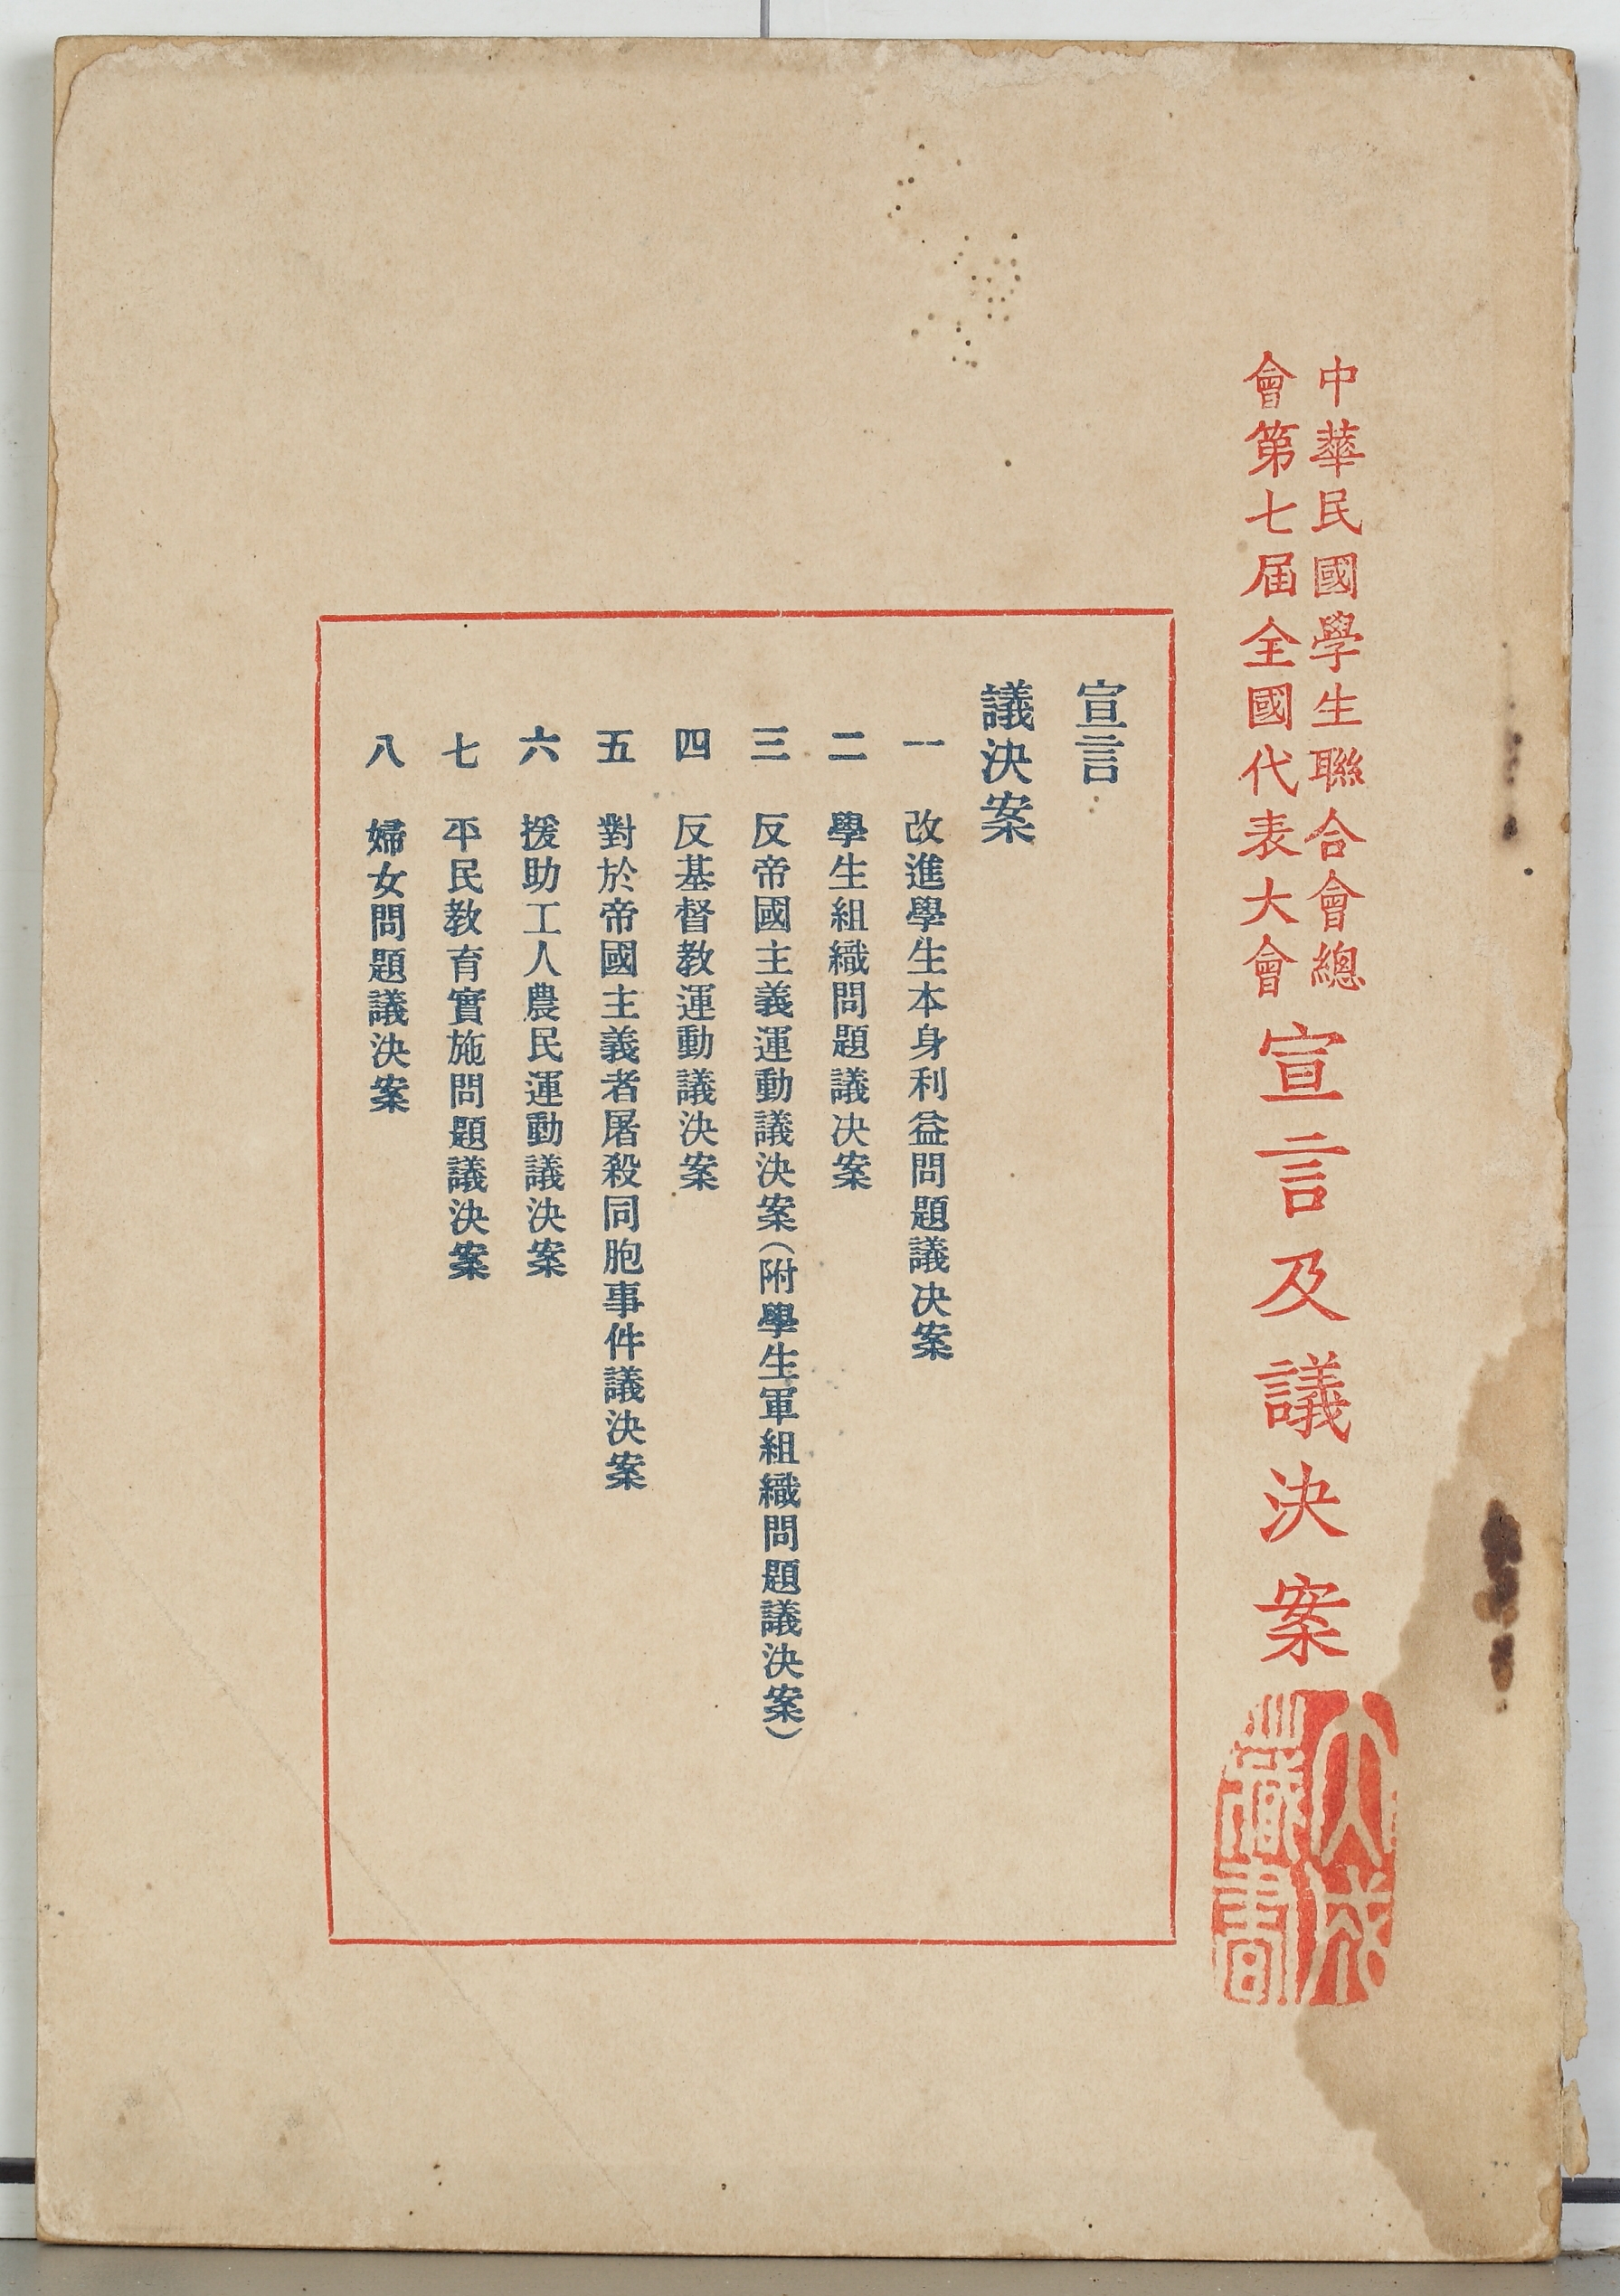 中華民國學生聯合會總
會第七屆全國代表大會
宣言及議決案
宣言
議決案
一 改進學生本身利益問題議决案
二 學生組織問題議决案
三 反帝國主義運動議決案（附學生軍組織問題議決案）
四 反基督教運動議決案
五 對於帝國主義者屠殺同胞事件議決案
六 援助工人農民運動議決案
七 平民教育實施問題議決案
八 婦女問題議決案
大成
藏書